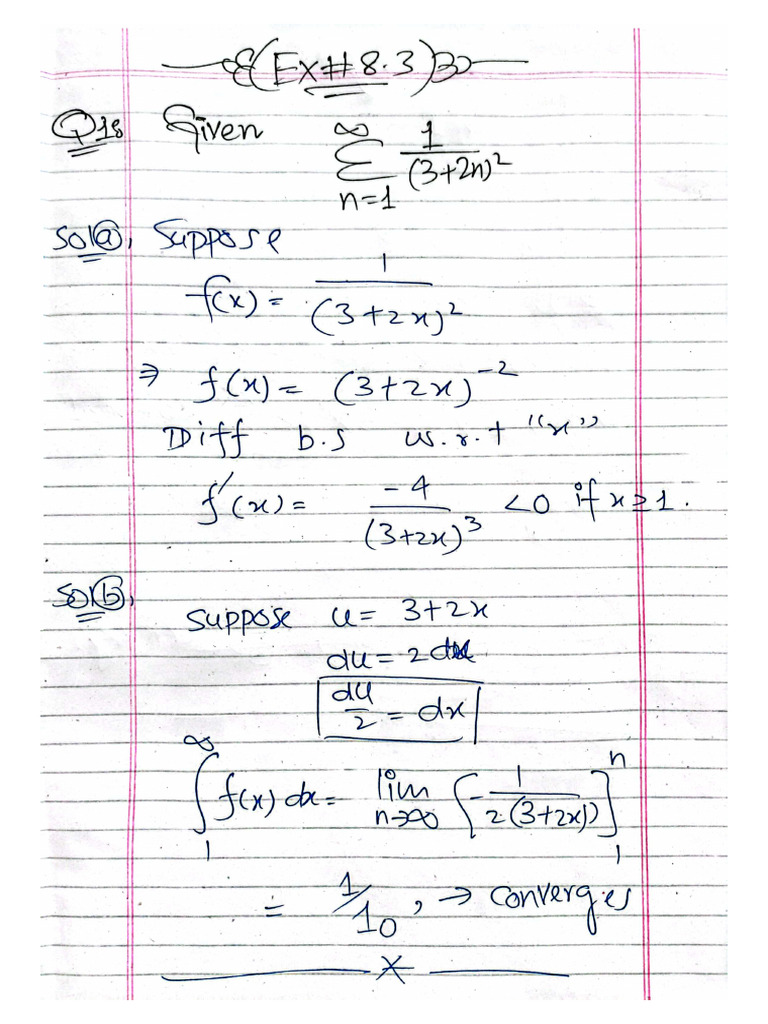 (Ex# 8.3)
Q1: Given ∞∑n=1 1/(3+2n)²
Sol(a), Suppose
f(x) = 1/(3+2x)²
⇒ f(x) = (3+2x)⁻²
Diff b.s w.r.t "x"
f'(x) = -4/(3+2x)³ <0 if x≥1.
Sol(b), Suppose u = 3+2x
du = 2dx
du/2 = dx
∫₁^∞ f(x) dx = lim n→∞ [-1/2.(3+2x))]₁ⁿ
= 1/10, → Converges